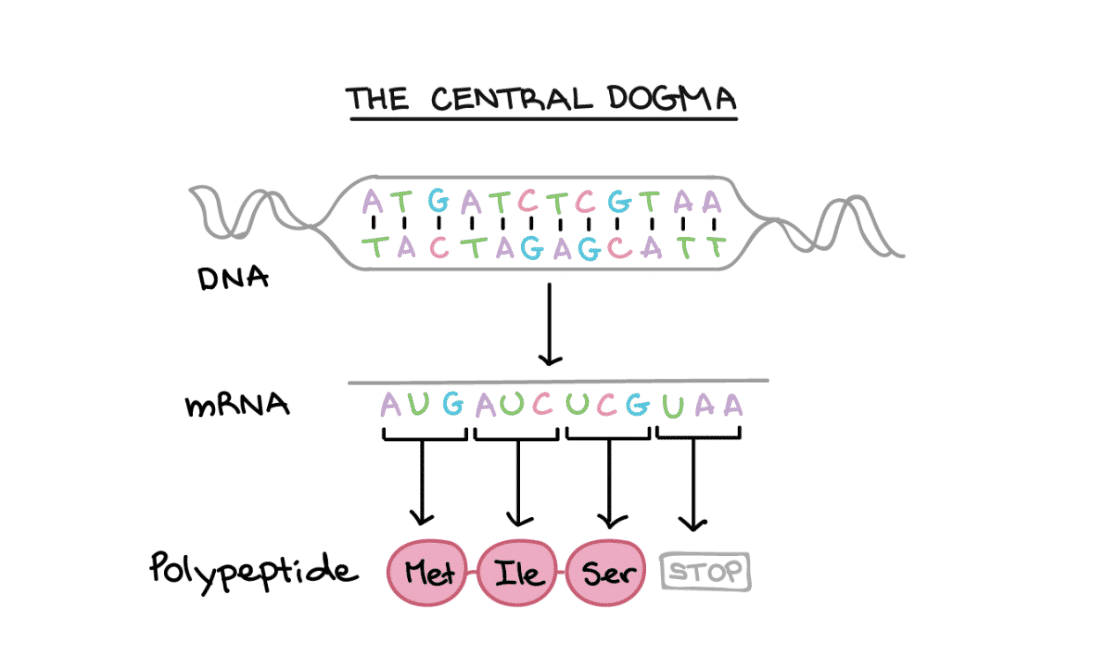 THE CENTRAL DOGMA
ATGATCTCGTAA
TACTAGAGCATT
DNA
mRNA AUGAUCUCGUAA
Polypeptide Met Ile Ser STOP